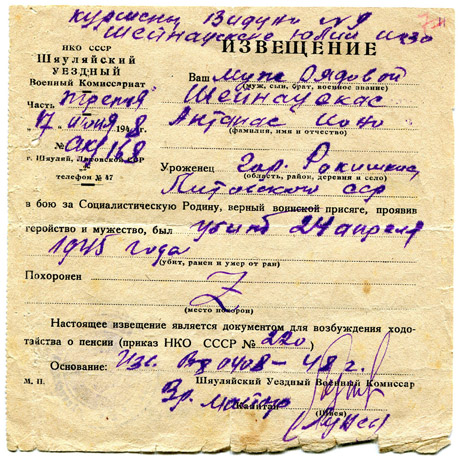 НКО СССР
Шяуляйский
УЕЗДНЫЙ
Военный Комиссариат
Часть третья
17 июня 1948
№
г. Шяуляй, Литовской ССР
телефон № 47
ИЗВЕЩЕНИЕ
Ваш муж рядовой
(муж, сын, брат, военное звание)
Шейнаускас
Антанас Ионо
(фамилия, имя и отчество)
Уроженец гор. Рокишкис
(область, район, деревня и село)
Литовского ССР
в бою за Социалистическую Родину, верный воинской присяге, проявив
геройство и мужество, был убит 24 апреля
1945 года
(убит, ранен и умер от ран)
Похоронен Z
(место похорон)
Настоящее извещение является документом для возбуждения ходо-
тайства о пенсии (приказ НКО СССР № 220
Основание: 0408-48 г.
М. П. Шяуляйский Уездный Военный Комиссар